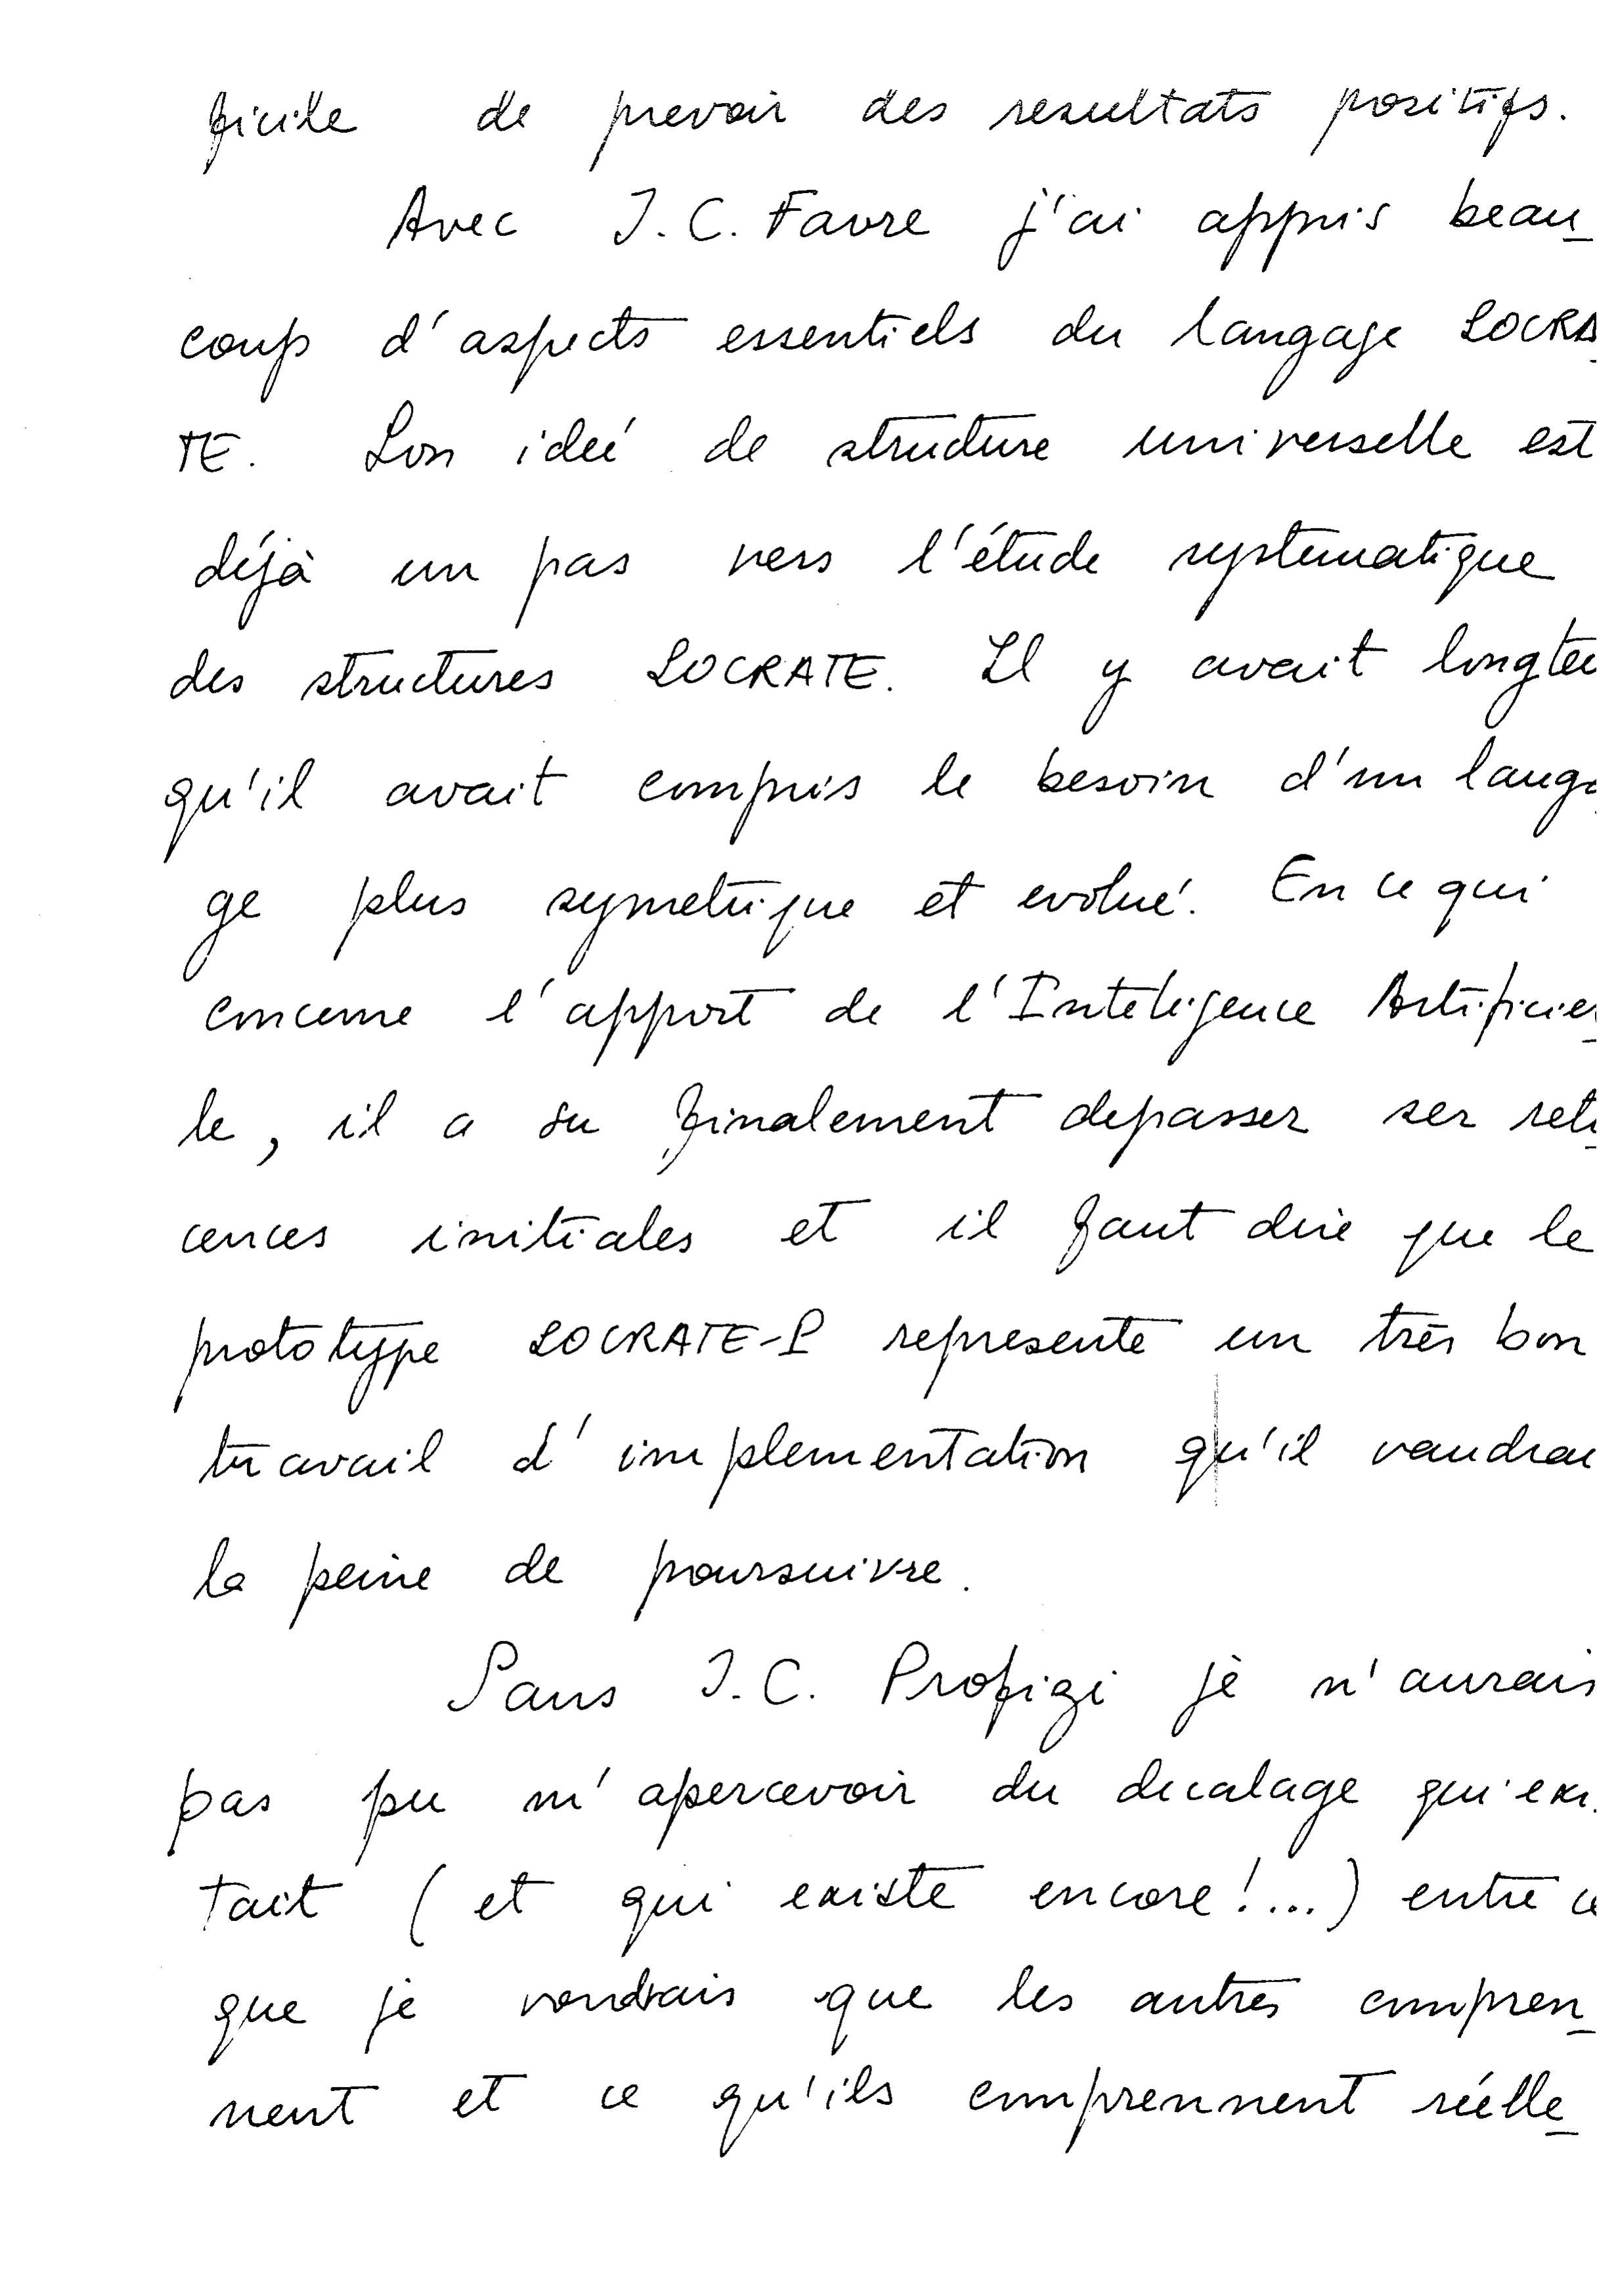 ficile de prevoir des resultats positifs.
Avec J.C. Favre j'ai appris beau_
coup d'aspects essentiels du langage SOCRA
TE. Son ideé de structure universelle est
déjà un pas vers l'étude systematique
des structures SOCRATE. Il y avait longte
qu'il avait compris le besoin d'un langa
ge plus symetrique et evolué. En ce qui
concerne l'apport de l'Inteligence Artificiel_
le, il a su finalement depasser ses reti_
cences initiales et il faut dire que le
prototype SOCRATE-P represente un très bon
travail d'implementation qu'il vaudrai
la peine de poursuivre.
Sans J.C. Profizi je n'aurais
pas pu m'apercevoir du decalage qui exi
tait (et qui existe encore!...) entre ce
que je voudrais que les autres compren_
nent et ce qu'ils comprennent réelle_